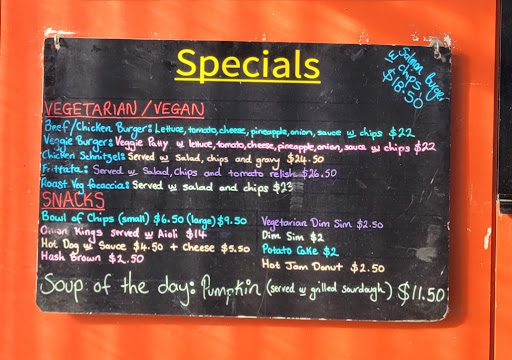 Specials
Salmon Burger
& chips
$18.50
VEGETARIAN/VEGAN
Beef/Chicken Burger: Lettuce, tomato, cheese, pineapple, onion, sauce w chips $22
Veggie Burger: Veggie Patty w lettuce, tomato, cheese, pineapple, onion, sauce w chips $22
Chicken Schnitzel: Served w Salad, chips and gravy $24.50
Frittata: Served w Salad, Chips and tomato relish $26.50
Roast Veg focaccia: Served w salad and chips $23
SNACKS
Bowl of Chips (small) $6.50 (large) $9.50
Onion Rings served w Aioli $14
Hot Dog w Sauce $4.50 + Cheese $5.50
Hash Brown $2.50
Vegetarian Dim Sim $2.50
Dim Sim $2
Potato Cake $2
Hot Jam Donut $2.50
Soup of the day: Pumpkin (served w grilled sourdough) $11.50